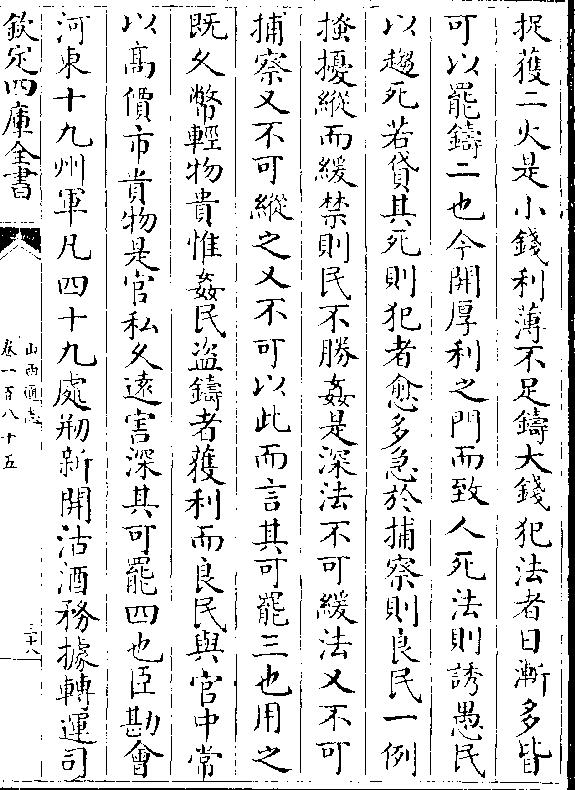 捉獲二火是小錢利薄不足鑄大錢犯法者日漸多皆
可以罷鑄二也今開厚利之門而致人死法則誘愚民
以趨死若貸其死則犯者愈多急於捕察則良民一例
搔擾縱而緩禁則民不勝姦是深法不可緩法又不可
捕察又不可縱之又不可以此而言其可罷三也用之
既久幣輕物貴惟姦民盜鑄者獲利而良民與官中常
以高價市貴物是官私久遠害深其可罷四也臣勘會
河東十九州軍凡四十九處剏新開沽酒務據轉運司
欽定四庫全書
山西通志
卷一百八十五
三十八